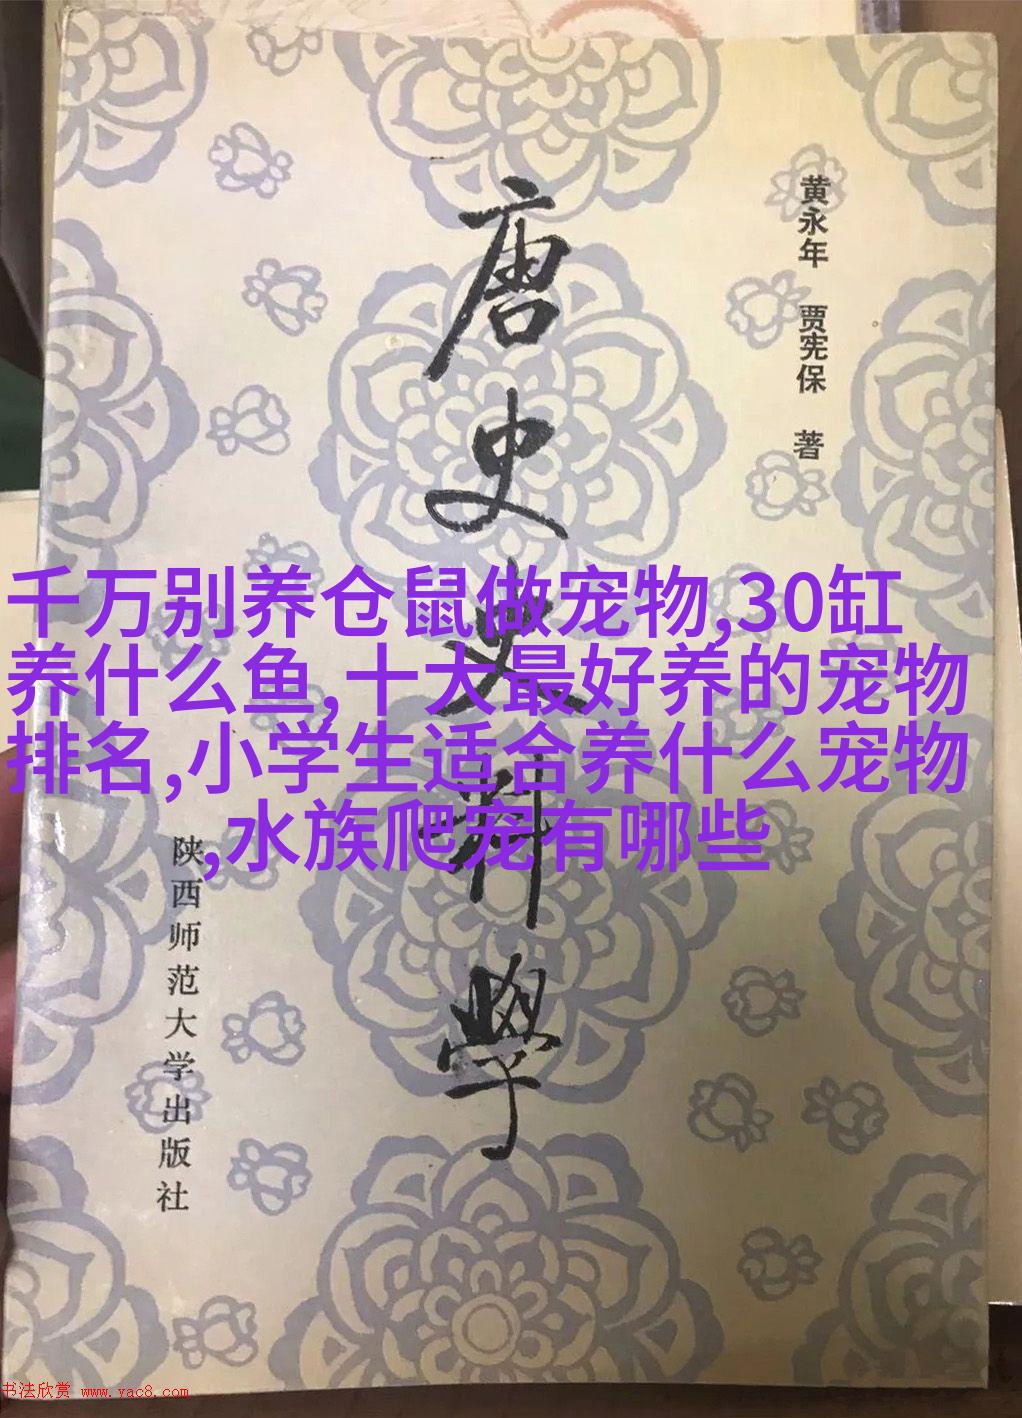 黄永年 贾宪保 著
唐史史料学
千万别养仓鼠做宠物,30缸
养什么鱼,十大最好养的宠物
排名,小学生适合养什么宠物
,水族爬宠有哪些
陕西师范大学出版社
书法欣赏 www.yac8.com